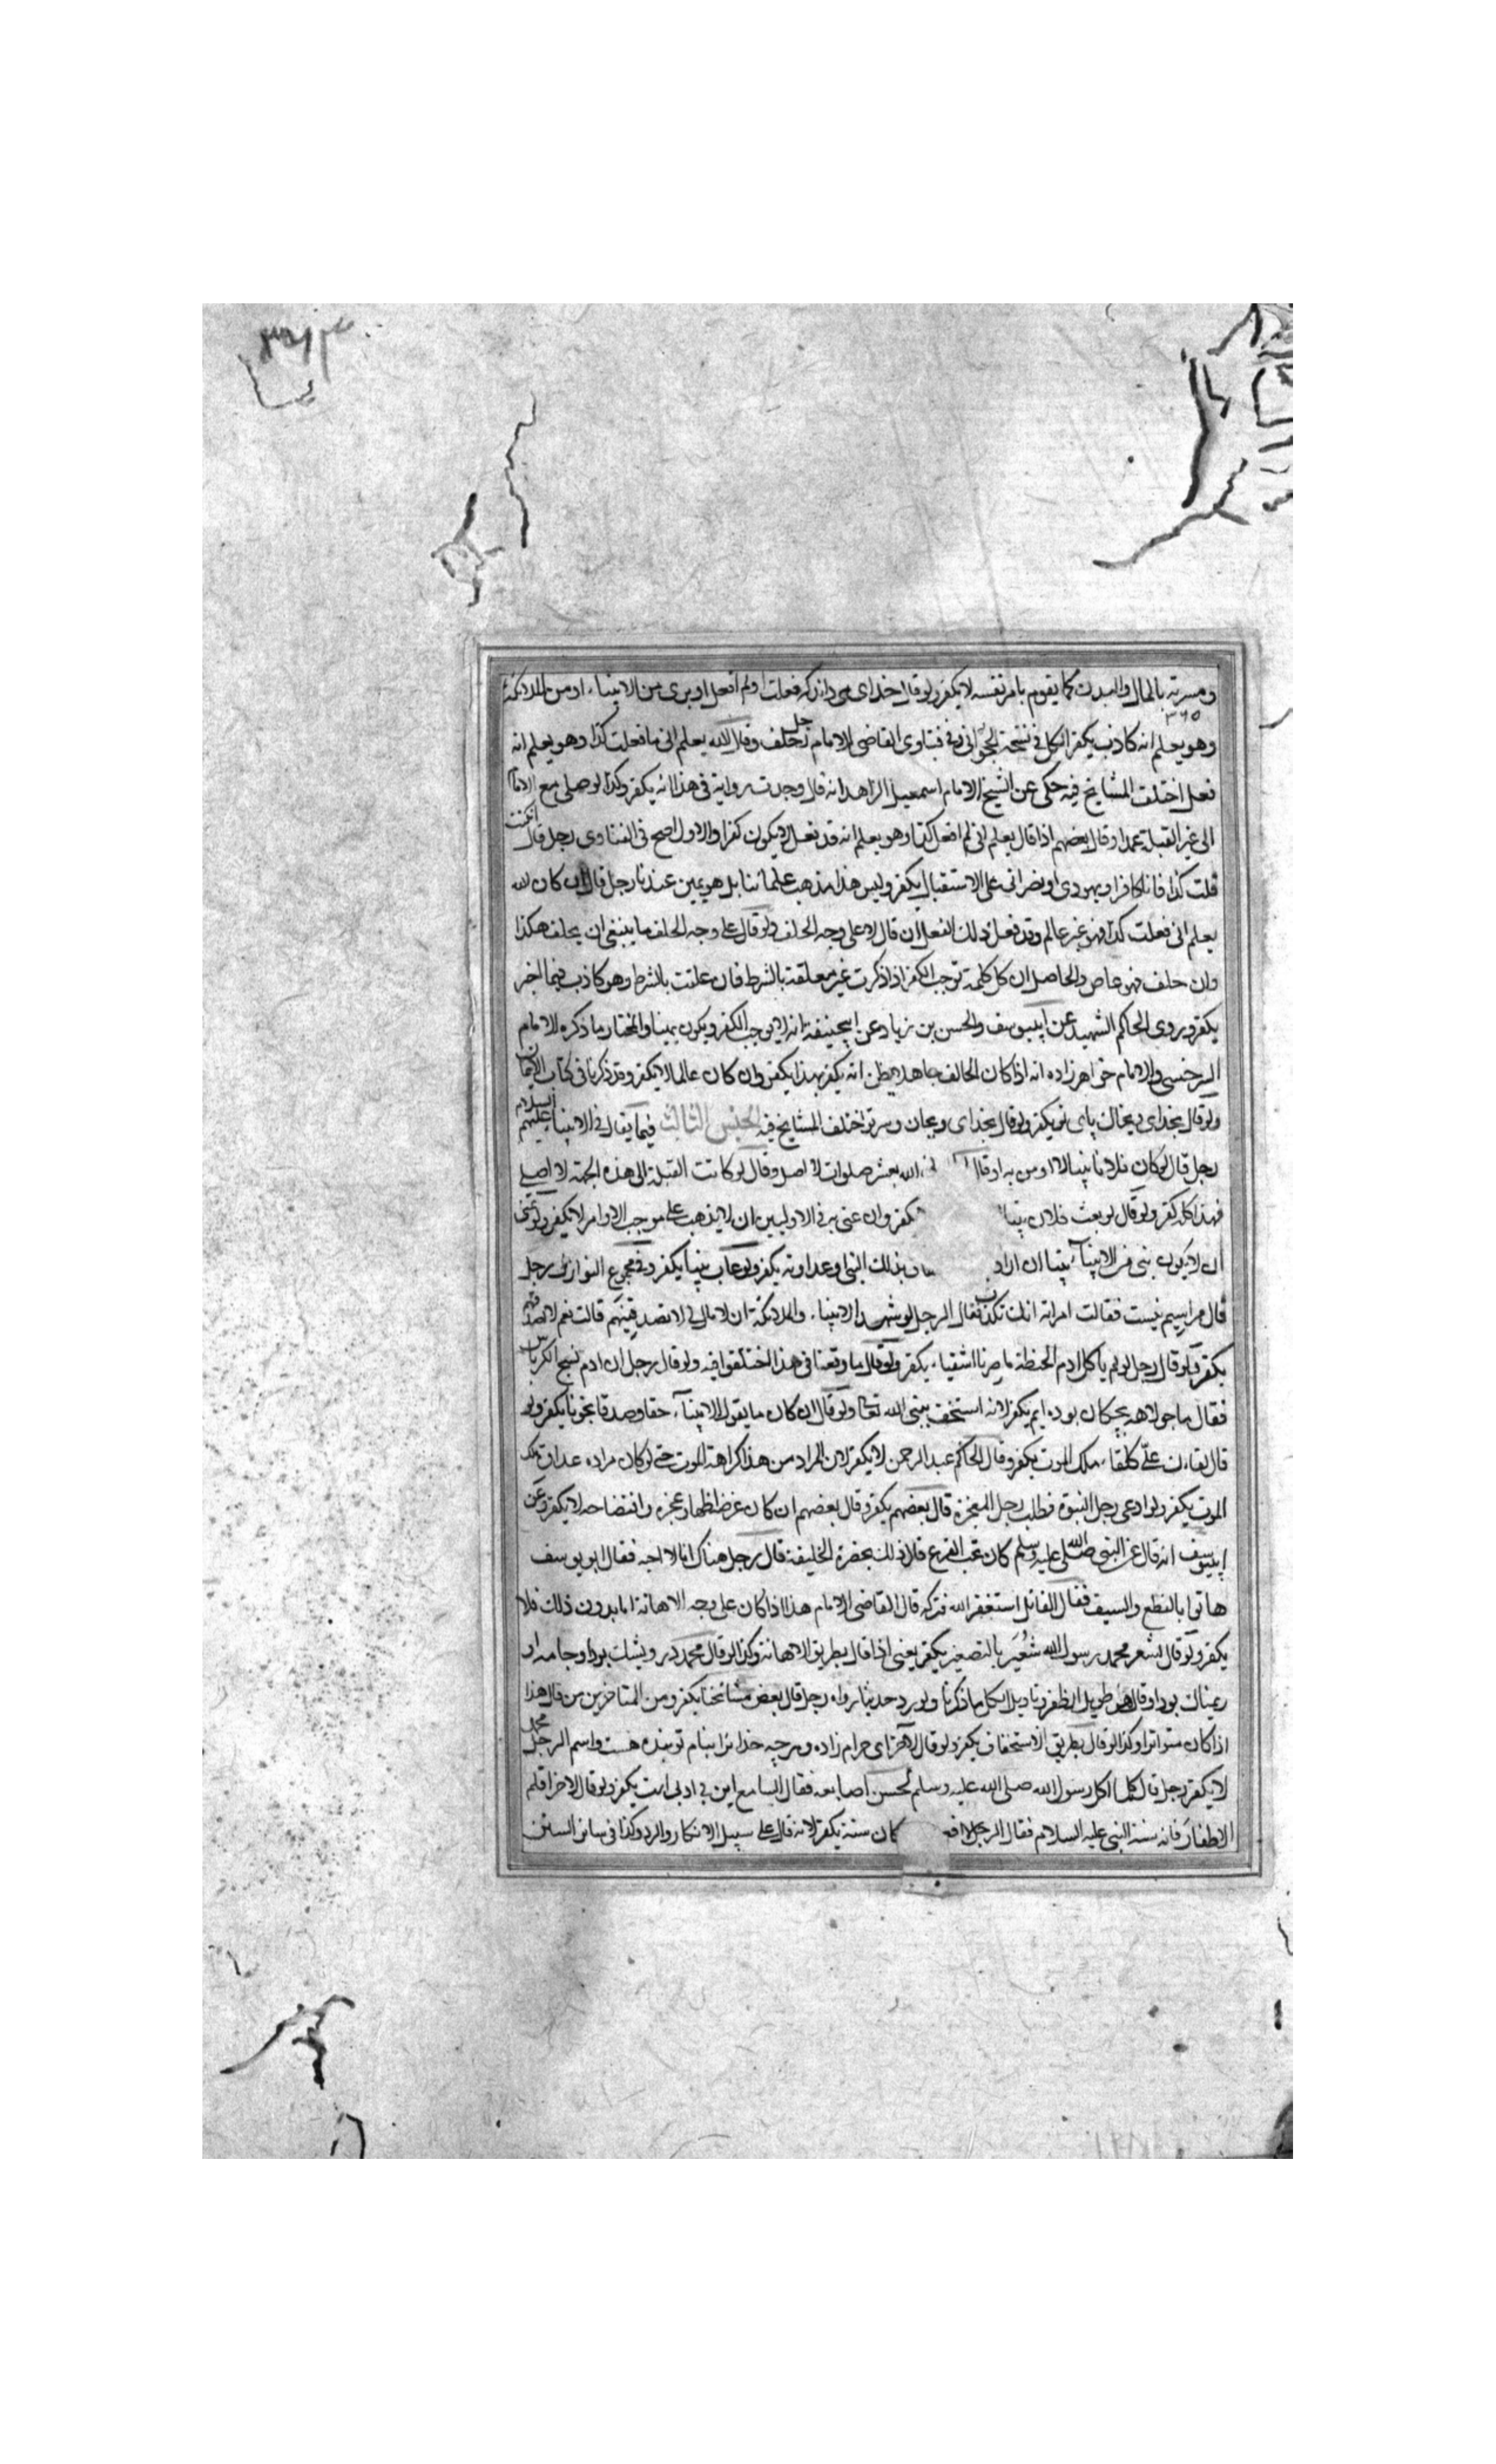 ومسرته بالمال والبدن كما يقوم بامر نفسه لا يكفر ولو قال خداى مى داند كه فعلت او لم افعل او برى من الانبياء او من الملائكة
٣٦٥
وهو يعلم انه كاذب يكفر الكل فى نسخة وفى فتاوى القاضى الامام رجل حلف وقال الله يعلم انى ما فعلت كذا وهو يعلم انه
فعل اختلف المشايخ فيه حكى عن الشيخ الامام اسمعيل الزاهد انه قال وجدت رواية فى هذا انه يكفر وكذا لو صلى مع الامام
الى غير القبلة عمدا وقال بعضهم اذا قال يعلم انى لم افعل كذا وهو يعلم انه قد فعل لا يكون كفرا والاول اصح فى الفتاوى رجل قال ان كنت
قلت كذا فانا كافر او يهودى او نصرانى على الاستقبال يكفر وليس هذا مذهب علمائنا بل هو يمين عندنا رجل قال ان كان لله
يعلم انى فعلت كذا فهو غير عالم وقد فعل ذلك الفعل ان قال لا على وجه الحلف ولو قال على وجه الحلف ما ينبغى ان يحلف هكذا
وان حلف فهو والحاصل ان كل كلمة توجب الكفر اذا ذكرت غير معلقة بالشرط فان علقت بالشرط وهو كاذب فيما اخبر
يكفر وروى الحاكم الشهيد عن ابيوسف والحسن بن زياد عن ابيحنيفة انه لا يوجب الكفر ويكون يمينا والمختار ما ذكره الامام
السرخسى والامام خواهرزاده انه اذا كان الحالف جاهلا يظن انه يكفر بهذا يكفر وان كان عالما لا يكفر وقد ذكرنا فى كتاب الايمان
ولو قال بخداى وبخاك پاى تو يكفر ولو قال بخداى وبجان وسر تو اختلف المشايخ فيه الجنس الثالث فيما يقال فى الانبياء عليهم السلام
رجل قال لو كان فلان نبيا لا اومن به او قال الله بعشر صلوات لا اصلى وقال لو كانت القبلة الى هذه الجهة لا اصلى
فهذا كله كفر ولو قال لو بعث فلان نبيا يكفر وان عنى به فى الاوليين ان لا يذهب على موجب الاوامر لا يكفر ولو تمنى
ان لا يكون نبى من الانبياء نبيا ان اراد بذلك النبى وعداوته يكفر ولو عاب نبيا يكفر وفى مجموع النوازل رجل
قال مراسيم نيست فقالت امرأته انك تكذب فقال الرجل لو شهد الانبياء والملائكة ان لا مال لى لا تصدقينهم قالت نعم لا اصدقهم
يكفر ولو قال رجل لو لم يأكل ادم الحنطة ما صرنا اشقياء يكفر ولو قال ما وقعنا فى هذا اختلفوا فيه ولو قال رجل ان ادم نسج الكرباس
فقال ما جولاهه بچكان بوده ايم يكفر لانه استخف بنبى الله تعالى ولو قال ان كان ما يقول الانبياء حقا وصدقا نجونا يكفر ولو
قال لقاءك على كلقاء ملك الموت يكفر وقال الحاكم عبد الرحمن لا يكفر لان المراد من هذا كراهة الموت حتى لو كان مراده عداوة ملك
الموت يكفر ولو ادعى رجل النبوة فطلب رجل المعجزة قال بعضهم يكفر وقال بعضهم ان كان غرضه اظهار عجزه وافتضاحه لا يكفر وعن
ابيوسف انه قال عن النبى صلى الله عليه وسلم كان يحب القرع فلان ذلك بحضرة الخليفة قال رجل هناك انا لا احبه فقال ابو يوسف
هاتوا بالنطع والسيف فقال القائل استغفر الله فتركه قال القاضى الامام هذا اذا كان على وجه الاهانة اما بدون ذلك فلا
يكفر ولو قال لشعر محمد رسول الله شُعَير بالتصغير يكفر يعنى اذا قال بطريق الاهانة وكذا لو قال محمد درويشك بود او جامه او
ريمناك بود او قال هو طويل الظفر وتاويل الكل ما ذكرنا ولو رد حديثا رواه رجل قال بعض مشائخنا يكفر ومن المتاخرين من قال هذا
اذا كان متواترا وكذا لو قال بطريق الاستخفاف يكفر ولو قال لاخر اى حرام زاده وهرچه خدايرا بنام تو بنده هست واسم الرجل محمد
لا يكفر رجل قال كلما اكل رسول الله صلى الله عليه وسلم لحس اصابعه فقال السامع اين بى ادبى است يكفر ولو قال لاخر اقلم
الاظفار فانه سنة النبى عليه السلام فقال الرجل لا كان سنة يكفر لانه قال على سبيل الانكار والرد وكذا فى سائر السنن